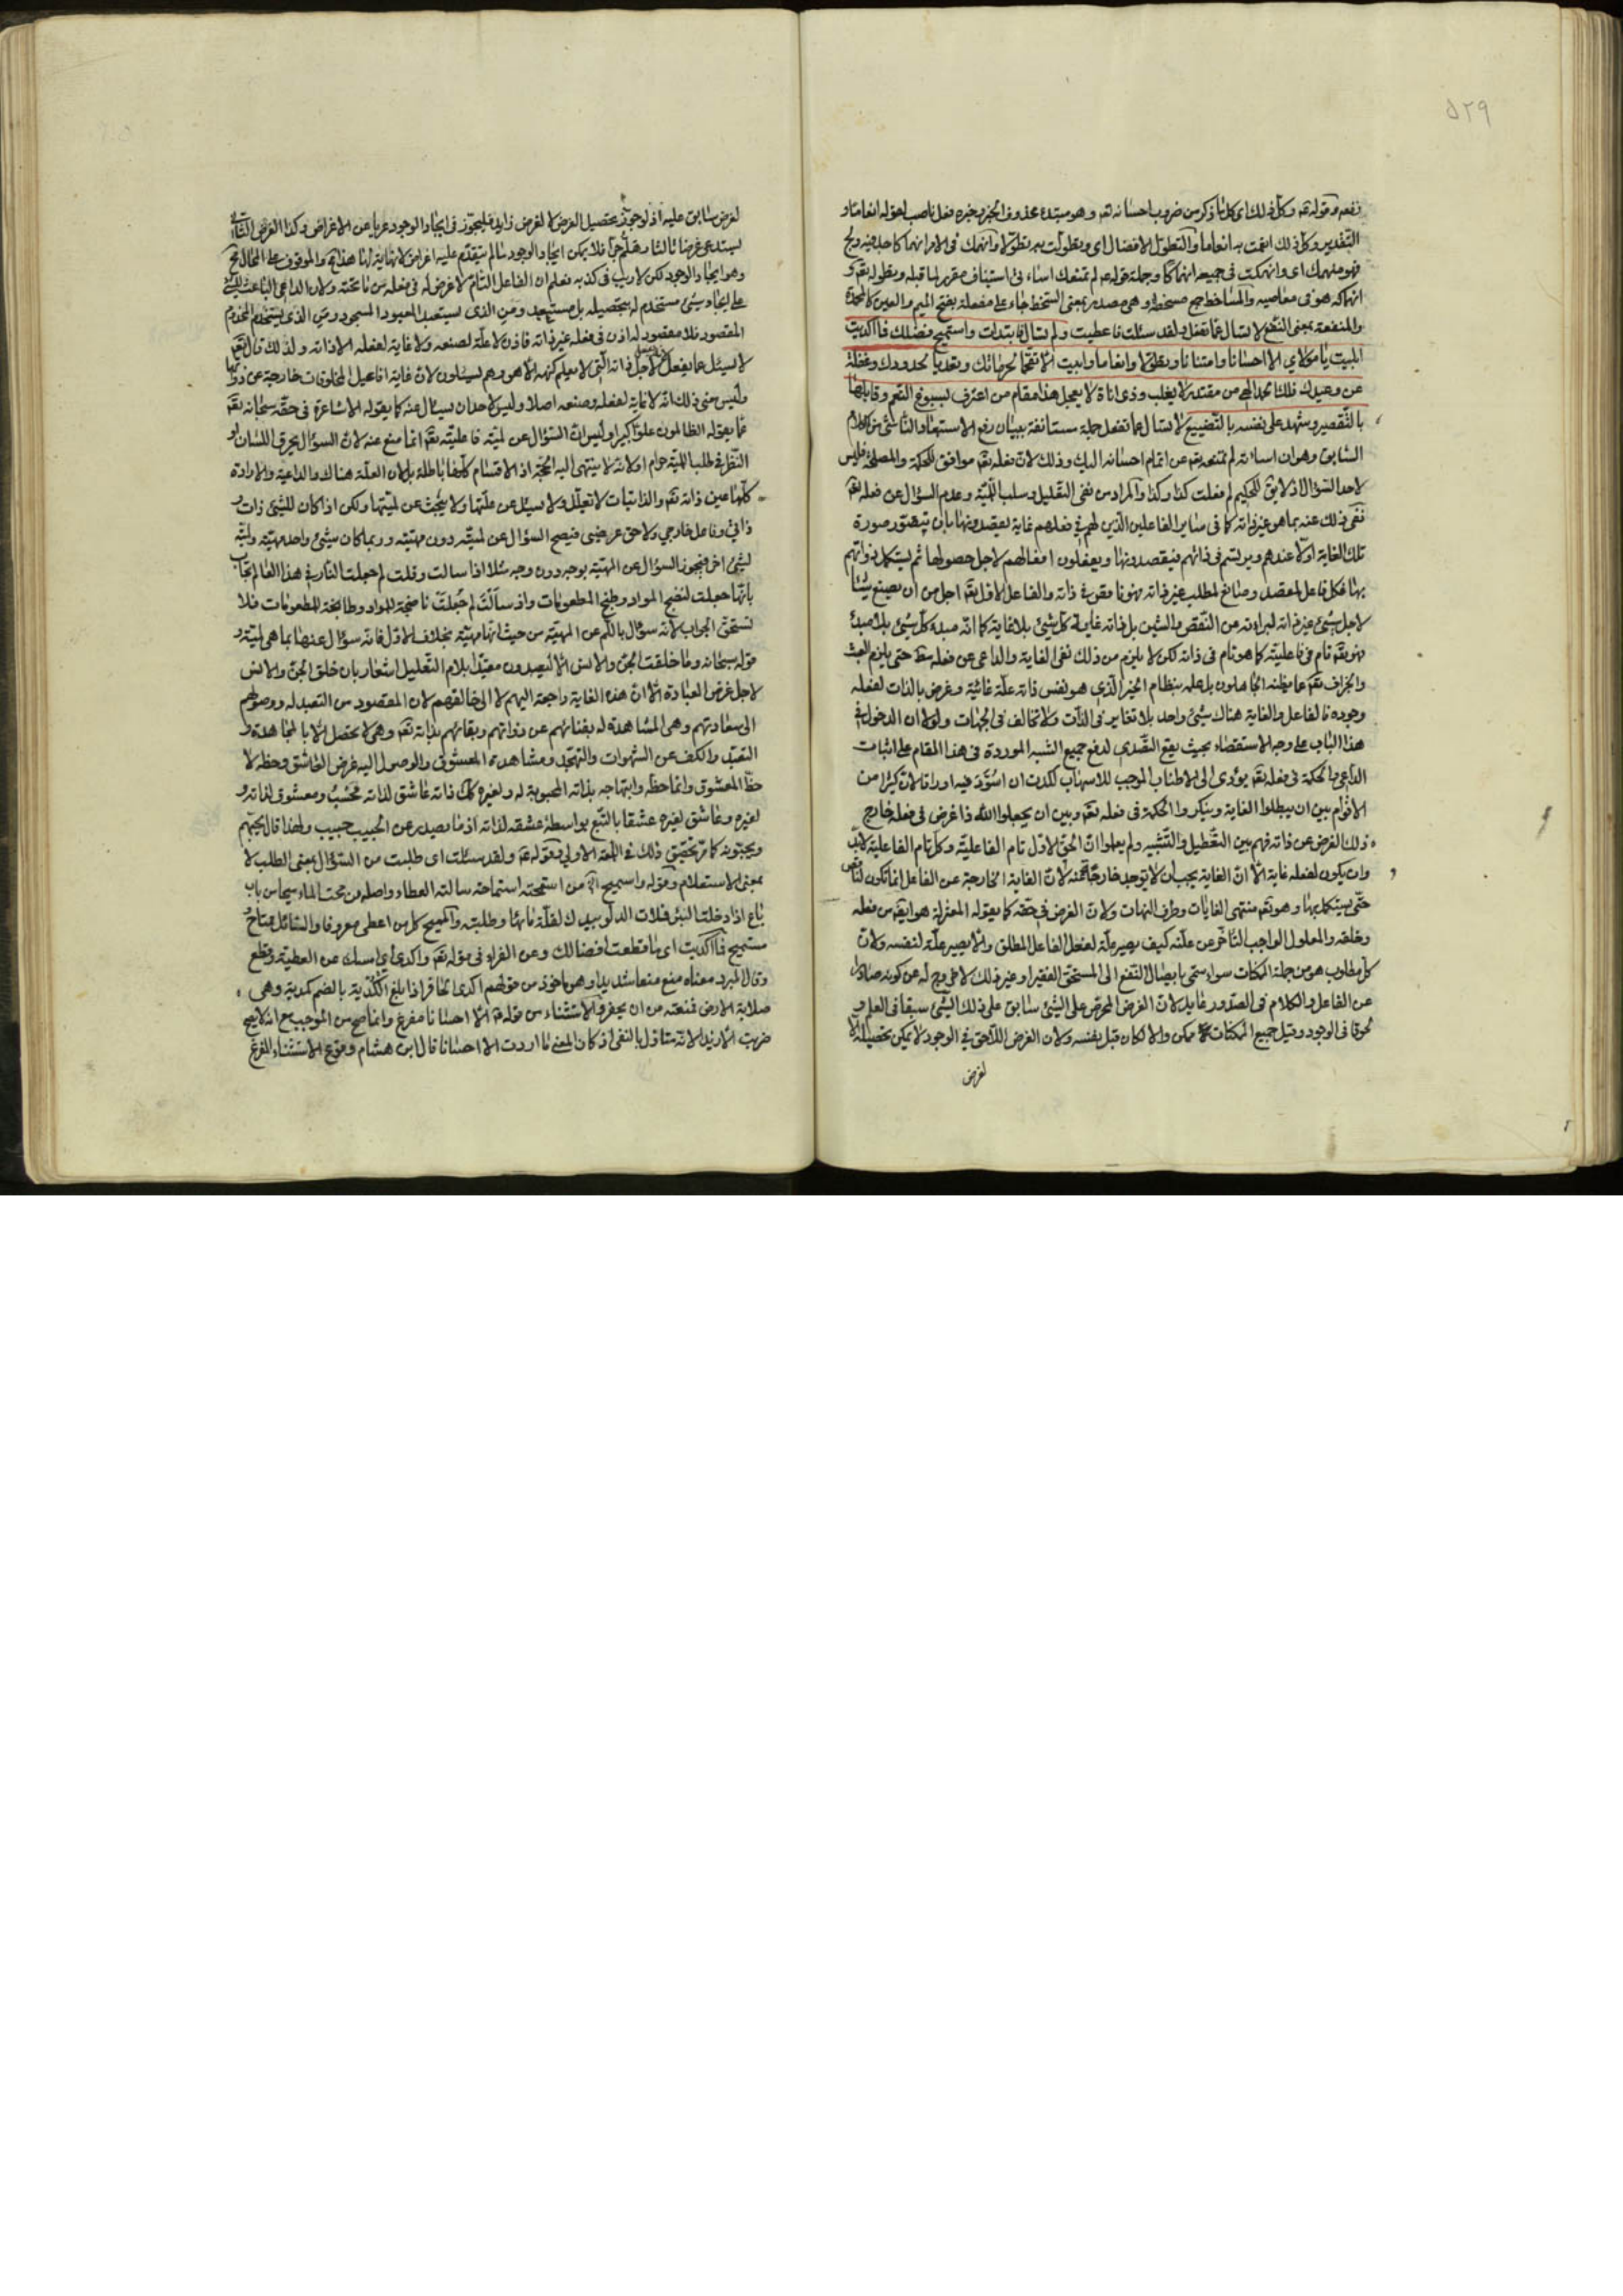 ٥٢٩
نفعه وقوله تم وكل ذلك اى كل ما ذكر من ضروب احسانه تم وهو مبتدء محذوف الخبر وخبره فعل ناصب لقوله انعاما و
التقدير وكل ذلك انعمت به انعاما والتطول الافضال اى وتطولت به تطولا وانهمك فى الامر انهماكا جد فيه ولج
فهو منهمك اى وانهمكت فى جميعه انهماكا وجملة قوله عم لم تمنعك اساءتى استيناف مقرر لما قبله وبطوله تقم و
انهماكه هو فى معاصيه والمساخط جمع مسخطة وهى مصدر بمعنى السخط جاء على مفعلة بفتح الميم والعين كالمحمدة
والمنفعة بمعنى النفع لا تسال عما تفعل ولقد سئلت فاعطيت ولم تسال فابتدات واستميح فضلك فما اكديت
ابيت يا مولاي الا احسانا وامتنانا وتطولا وانعاما وابيت الا تقحما لحرماتك وتعديا لحدودك وغفلة
عن وعيدك فلك الحمد الهى من مقتدر لا يغلب وذى اناة لا يعجل هذا مقام من اعترف بسبوغ النعم وقابلها
بالتقصير وشهد على نفسه بالتضييع لا تسال عما تفعل جملة مستانفة ببيان رفع الاستبعاد الناشئ من الكلام
السابق وهو ان اساءته لم تمنعه تقم عن اتمام احسانه اليك وذلك لان فعله تقم موافق للحكمة والمصلحة فليس
لاحد السؤال اذ لا يق للحكيم لم فعلت كذا وكذا والمراد من نفى التعليل وسلب اللمية وعدم السؤال عن فعله تقم
نفى ذلك عنه بما هو غير ذاته كما فى سائر الفاعلين الذين لهم فى فعلهم غاية يقصدونها بان يتصور صورة
تلك الغاية اولا عندهم ويرتسم فى ذاتهم فيقصدونها ويفعلون افعالهم لاجل حصولها ثم يستكمل ذواتهم
بها فكل فاعل لمقصد وصانع لمطلب غير ذاته فهو فاقر فى ذاته والفاعل الاول تقم اجل من ان يصنع شيئا
لاجل شئ غير ذاته لبراءته عن النقص والشين بل ذاته غاية كل شئ بلا غاية كما انه مبدء كل شئ بلا مبدء
فهو تقم تام فى فاعليته كما هو تام فى ذاته لكن لا يلزم من ذلك نفى الغاية والداعى عن فعله مط حتى يلزم العبث
والجزاف تقم عما يظنه الجاهلون بل علمه بنظام الخير الذى هو نفس ذاته علة غائية وغرض بالذات لفعله
وجوده فالفاعل والغاية هناك شئ واحد بلا تغاير فى الذات ولا تخالف فى الجهات ولولا ان الدخول فى
هذا الباب على وجه الاستقصاء بحيث يقع التصدى لدفع جميع الشبه الموردة فى هذا المقام على اثبات
الداعى والحكمة فى فعله تقم يؤدى الى الاطناب الموجب للاسهاب لكدت ان اسود فيه اوراقا لان كثيرا من
الاقوام بين ان يبطلوا الغاية وينكروا الحكمة فى فعله تقم وبين ان يجعلوا الله ذا غرض فى فعله خارج
ذلك الغرض عن ذاته فهم بين التعطيل والتشبيه ولم يعلموا ان الحق الاول تام الفاعلية وكل تام الفاعلية لابد
وان يكون لفعله غاية الا ان الغاية يجب ان لا توجد خارجة عنه لان الغاية الخارجة عن الفاعل انما تكون لناقص
حتى يستكمل بها وهو تقم منتهى الغايات وطرف النهايات ولان الغرض فى حقه كما يقوله المعتزلة هو ايضا من فعله
وخلقه والمعلول الواجب التاخر عن علته كيف يصير علة لفعل الفاعل المطلق والا يصير علة لنفسه ولان
كل مطلوب هو من جملة الممكنات سواء سمى بايصال النفع الى المستحق الفقير او غير ذلك لا خروج له عن كونه صادرا
عن الفاعل والكلام فى الصدور عايد لان الغرض المحرض على الشئ سابق على ذلك الشئ سبقا فى العلم و
لحوقا فى الوجود وقبل جميع الممكنات لا ممكن والا لكان قبل نفسه ولان الغرض اللاحق فى الوجود لا يمكن تحصيله الا
لغرض
لغرض سابق عليه اذ لو جوز تحصيل الغرض لا لغرض زايد فليجوز فى ايجاد الوجود عريا عن الاغراض وكذا الغرض السابق
يستدعى غرضا ثالثا وهلم جرا فلا يمكن ايجاد الوجود ما لم يتقدم عليه اغراض لا نهاية لها هذا مح والموقوف على المحال مح
وهو ايجاد الوجود لكن لا ريب فى كذبه فعلم ان الفاعل التام لا غرض له فى فعله من ما تحته ولان الداعى الباعث للشئ
على ايجاد شئ مستخدم له بتحصيله بل مستعبد ومن الذى يستعبد المعبود المسجود ومن الذى يستخدم المخدوم
المقصود فلا مقصود له اذن فى فعله غير ذاته فاذن لا علة لصنعه ولا غاية لفعله الا ذاته ولذلك قال تقم
لا يسئل عما يفعل لاجل ذاته التى لا يعلم كنهه الا هو وهم يسئلون لان غاية افاعيل المخلوقات خارجة عن ذواتها
وليس معنى ذلك انه لا غاية لفعله وصنعه اصلا وليس لاحد ان يسئال عنه كما يقوله الاشاعرة فى حقه سبحانه تقم
عما يقوله الظالمون علوا كبيرا وليس ان السؤال عن لمية فاعليته تقم انما منع عنه لان السؤال يحرق اللسان او
النظر فى طلب اللمية حرام او لانه لا ينتهى اليه الحجة اذ الاقسام كلها باطلة بل لان العلة هناك والداعية والارادة
كلها عين ذاته تقم والذاتيات لا تعلل ولا يسئل عن علتها ولا يبحث عن لميتها ولكن اذا كان للشئ ذات و
ذاتى وفاعل خارجي ولاحق عرضى فيصح السؤال عن لميته دون مهيته وربما كان شئ واحد مهيته ولمية
لشئ اخر فيجوز السؤال عن المهية بوجه دون وجه مثلا اذا سالت وقلت لم جعلت النار فى هذا العالم تجاب
بانها جعلت لنضج المواد وطبخ المطعومات واذ سالت لم جعلت ناضجة للمواد وطابخة للمطعومات فلا
تستحق الجواب لانه سؤال باللم عن المهية من حيث انها مهية بخلاف الاول فانه سؤال عنها بما هى لمية و
قوله سبحانه وما خلقت الجن والانس الا ليعبدون معقبا بلام التعليل اشعار بان خلق الجن والانس
لاجل غرض العبادة الا ان هذه الغاية راجعة اليهم لا الى خالقهم لان المقصود من التعبد له ووصولهم
الى سعادتهم وهى المشاهدة له بفنائهم عن ذواتهم وبقائهم بذاته تقم وهى لا يحصل الا بالمجاهدة و
التعبد والكف عن الشهوات والتهجد ومشاهدة المعشوق والوصول اليه غرض العاشق وحظه لا
حظ المعشوق وانما حظه وابتهاجه بذاته المحبوبة له ولغيره لان ذاته عاشق لذاته فحسب ومعشوق لذاته و
لغيره وعاشق لغيره عشقا بالتبع بواسطة عشقه لذاته اذ ما يصدر عن الحبيب حبيب ولهذا قال يحبهم
ويحبونه كما مر تحقيق ذلك فى اللمعة الاولى وقوله عم ولقد سئلت اى طلبت من السؤال بمعنى الطلب لا
بمعنى الاستعلام وقوله واستميح اه من استمحته استماحة سالته العطاء واصله من محت الماء ميحا من باب
باع اذا دخلت البئر فملات الدلو بيدك لقلة مائها وطلبته والمميح كل من اعطى معروفا والسائل ممتاح و
مستميح فما اكديت اى ما قطعت افضالك وعن الفراء فى قوله تقم واكدى اى امسك عن العطية وقطع
وقال المبرد معناه منع منعا شديدا وهو ماخوذ من قولهم اكدى الحافر اذا بلغ الكدية بالضم كمدية وهى
صلابة الارض فمنعته من ان يحفر والاستثناء من قوله عم الا احسانا مفرغ وانما صح من الموجب مع انه لا يصح
ضربت الا زيدا لانه متاول بالنفى اذ كان المعنى ما اردت الا احسانا قال ابن هشام وقوع الاستثناء المفرغ